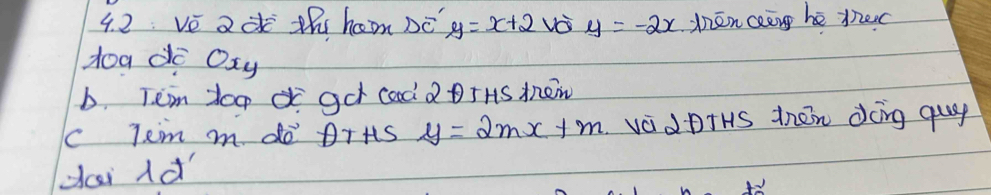 4.2. Vẽ 2 đồ thị hàm số y = x+2 và y = -2x trên cùng hệ trục
tọa độ Oxy
b. Tìm tọa độ gđ của 2 ĐTHS trên
c Tìm m để ĐTHS y = 2mx + m và 2 ĐTHS trên đồng quy
tại 1đ